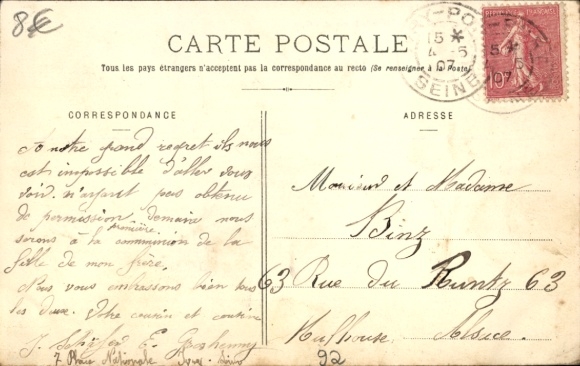 8€
CARTE POSTALE
Tous les pays étrangers n'acceptent pas la correspondance au recto (Se renseigner à la Poste)
CORRESPONDANCE
A notre grand regret ils nous
est impossible d'aller vous
voir. n'ayant pas obtenu
de permission demain nous
serons à la première communion de la
fille de mon frère.
Nous vous embrassons bien tous
les deux. Votre cousin et cousine
J. E.
7 Place Nationale Ivry
ADRESSE
Monsieur et Madame
Binz
63 Rue du Runtz 63
Mulhouse Alsace.
92
15 *
4 - 5
07
SEINE
10